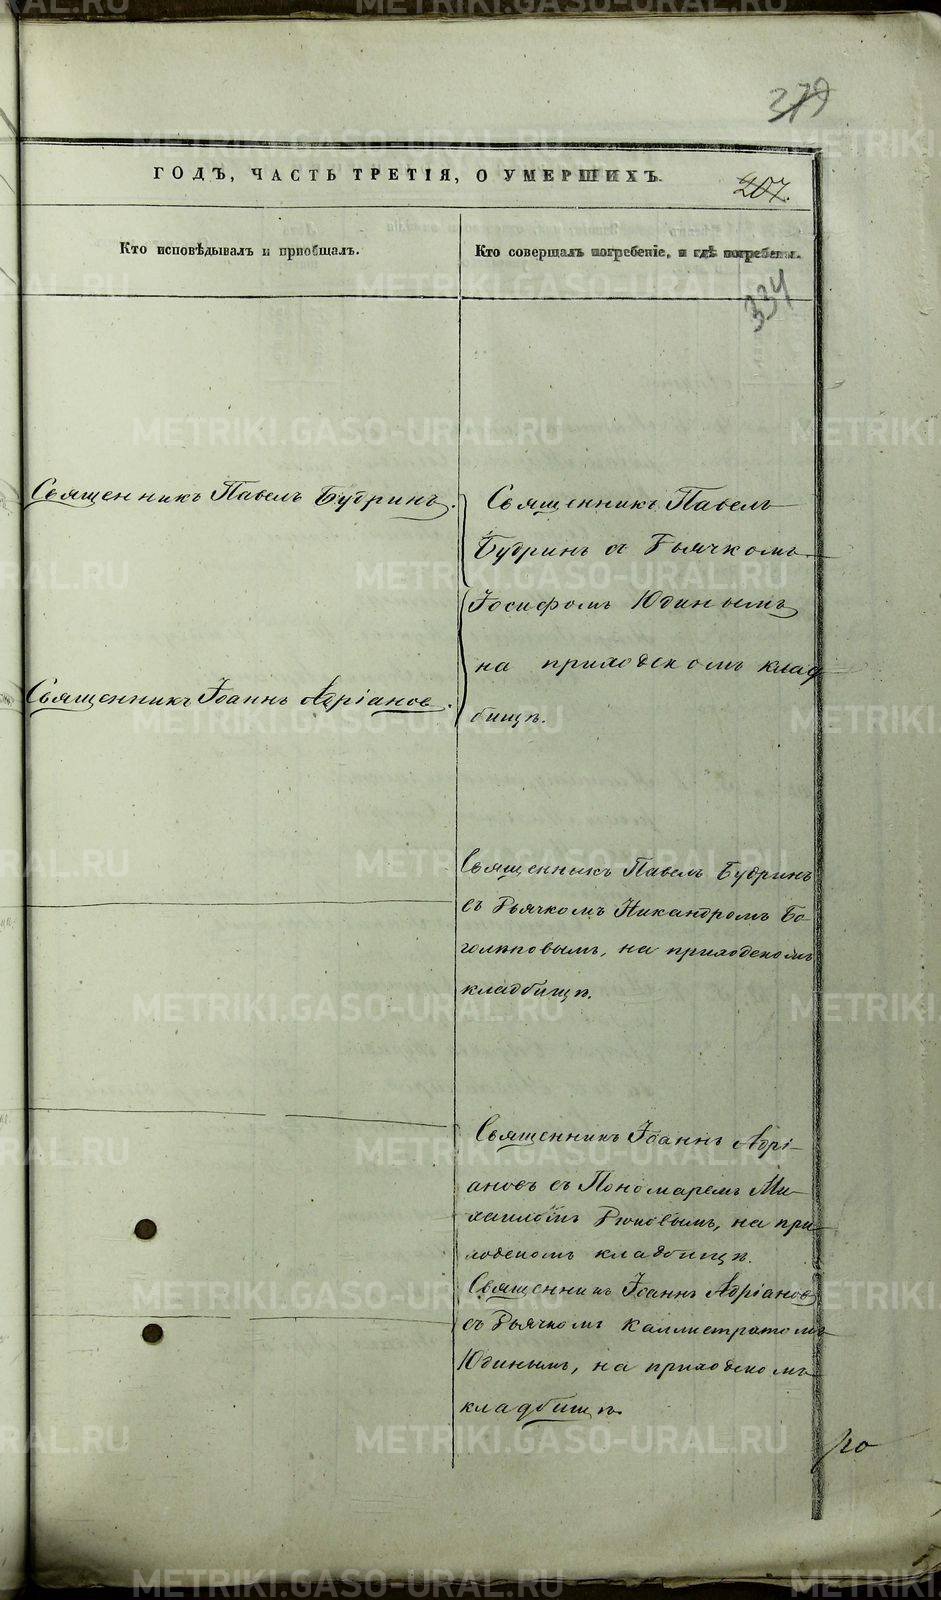 379
ГОДЪ, ЧАСТЬ ТРЕТІЯ, О УМЕРШИХЪ.
207.
Кто исповѣдывалъ и пріобщалъ.
Кто совершалъ погребеніе, и гдѣ погребены.
334
Священникъ Павелъ Будринъ.
Священникъ Павелъ
Будринъ съ Дьячкомъ
Іосифомъ Юдинымъ
на приходскомъ клад
бищѣ.
Священникъ Іоаннъ Адріановъ.
Священникъ Павелъ Будринъ
съ Дьячкомъ Никандромъ Бо-
голѣповымъ, на приходскомъ
кладбищѣ.
Священникъ Іоаннъ Адрі-
ановъ съ Пономаремъ Ми-
хаиломъ на при-
ходскомъ кладбищѣ.
Священникъ Іоаннъ Адріановъ
съ Дьячкомъ Каллистратомъ
Юдинымъ, на приходскомъ
кладбищѣ.
METRIKI.GASO-URAL.RU